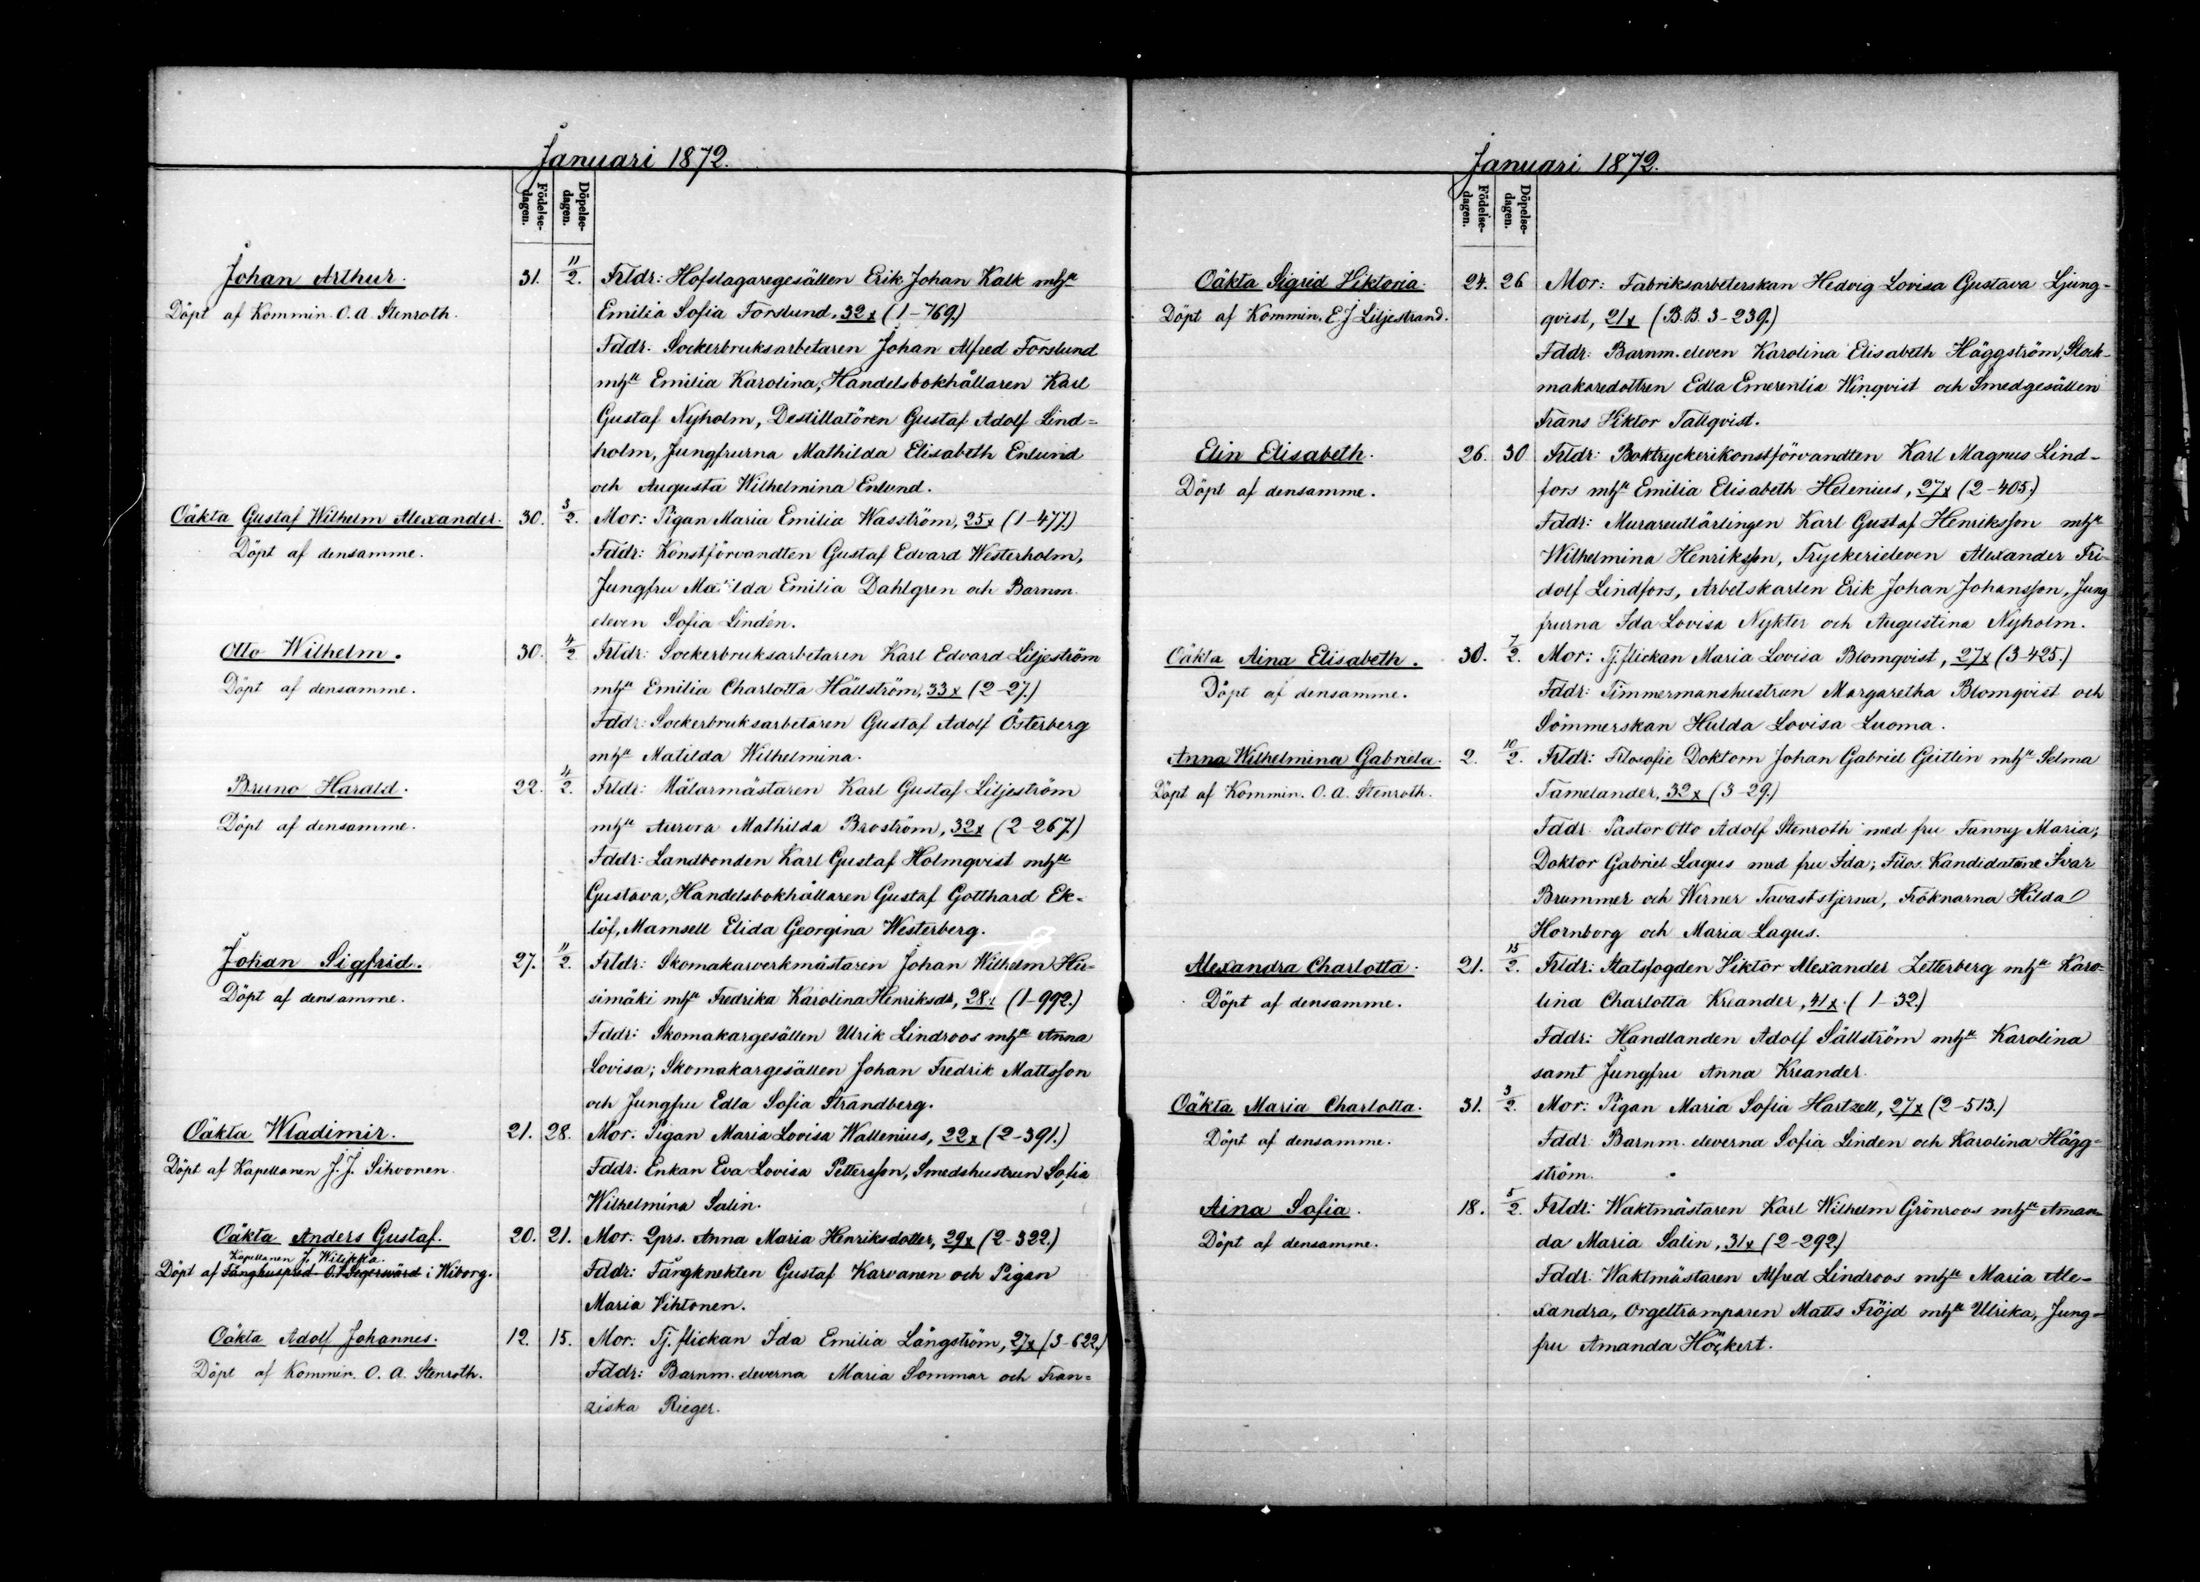 Januari 1872.
Födelse-dagen.
Döpelse-dagen.
Johan Arthur. 31. 11/2. Frldr: Hofslagaregesällen Erik Johan Kalk mhu
Döpt af Kommin. O. A. Stenroth. Emilia Sofia Forslund, 32x (1-769.)
Fddr. Sockerbruksarbetaren Johan Alfred Forslund
mhu Emilia Karolina, Handelsbokhållaren Karl
Gustaf Nyholm, Destillatören Gustaf Adolf Lind=
holm, Jungfrurna Mathilda Elisabeth Enlund
och Augusta Wilhelmina Enlund.
Oäkta Gustaf Wilhelm Alexander. 30. 3/2. Mor: Pigan Maria Emilia Wasström, 25x (1-477.)
Döpt af densamme. Fddr: Konstförvandten Gustaf Edvard Westerholm,
Jungfru Matilda Emilia Dahlgren och Barnm.
eleven Sofia Lindén.
Otto Wilhelm. 30. 4/2 Frldr: Sockerbruksarbetaren Karl Edvard Liljeström
Döpt af densamme. mhu Emilia Charlotta Hällström, 33x (2-27.)
Fddr: Sockerbruksarbetaren Gustaf Adolf Österberg
mhu Matilda Wilhelmina.
Bruno Harald. 22. 4/2. Frldr: Målarmästaren Karl Gustaf Liljeström
Döpt af densamme. mhu Aurora Mathilda Broström, 32x (2-267.)
Fddr: Landbonden Karl Gustaf Holmqvist mhu
Gustava, Handelsbokhållaren Gustaf Gotthard Ek-
löf, Mamsell Elida Georgina Westerberg.
Johan Sigfrid. 27. 11/2. Frldr: Skomakarverkmästaren Johan Wilhelm Hir-
Döpt af densamme. simäki mhu Fredrika Karolina Henriksdr, 28x (1-992.)
Fddr: Skomakargesällen Ulrik Lindroos mhu Anna
Lovisa; Skomakargesällen Johan Fredrik Mattsson
och Jungfru Edla Sofia Strandberg.
Oäkta Wladimir. 21. 28. Mor: Pigan Maria Lovisa Wallenius, 22x (2-391.)
Döpt af Kapellanen J. J. Sihvonen. Fddr: Enkan Eva Lovisa Pettersson, Smedshustrun Sofia
Wilhelmina Salin.
Oäkta Anders Gustaf. 20. 21. Mor: Qprs. Anna Maria Henriksdotter, 29x (2-322.)
Kapellanen J. Wilikka.
Döpt af Fånghuspred. O. F. Segerwärd i Wiborg. Fddr: Fångknekten Gustaf Karvanen och Pigan
Maria Vihtonen.
Oäkta Adolf Johannes. 12. 15. Mor: Tj. flickan Ida Emilia Långström, 27x (3-622.)
Döpt af Kommin. O. A. Stenroth. Fddr: Barnm. eleverna Maria Sommar och Fran=
ziska Rieger.
Januari 1872.
Födelse-dagen.
Döpelse-dagen.
Oäkta Sigrid Viktoria. 24. 26 Mor: Fabriksarbeterskan Hedvig Lovisa Gustava Ljung-
Döpt af Kommin. E J Liljestrand. qvist, 21x (B.B. 3-239.)
Fddr: Barnm. eleven Karolina Elisabeth Häggström, Stock-
makaredottren Edla Emerentia Winqvist och Smedgesällen
Frans Viktor Tallqvist.
Elin Elisabeth. 26. 30 Frldr: Boktryckerikonstförvandten Karl Magnus Lind-
Döpt af densamme. fors mhu Emilia Elisabeth Helenius, 27x (2-405.)
Fddr: Murareutlärlingen Karl Gustaf Henriksson mhu
Wilhelmina Henriksson, Tryckerieleven Alexander Fri-
dolf Lindfors, Arbetskarlen Erik Johan Johansson, Jung
frurna Ida Lovisa Nykter och Augustina Nyholm.
Oäkta Aina Elisabeth. 30. 7/2. Mor: Tj. flickan Maria Lovisa Blomqvist, 27x (3-425.)
Döpt af densamme. Fddr: Timmermanshustrun Margaretha Blomqvist och
Sömmerskan Hulda Lovisa Luoma.
Anna Wilhelmina Gabriela. 2. 10/2. Frldr: Filosofie Doktorn Johan Gabriel Geitlin mhu Selma
Döpt af Kommin. O. A. Stenroth. Tamelander, 32x (3-29.)
Fddr. Pastor Otto Adolf Stenroth med fru Fanny Maria;
Doktor Gabriel Lagus med fru Ida; Filos. Kandidatene Ivar
Brummer och Werner Tavaststjerna, Fröknarna Hilda
Hornborg och Maria Lagus.
Alexandra Charlotta. 21. 15/2. Frldr: Statsfogden Viktor Alexander Zetterberg mhu Karo-
Döpt af densamme. lina Charlotta Kreander, 41x. (1-32.)
Fddr: Handlanden Adolf Sällström mhu Karolina
samt Jungfru Anna Kreander.
Oäkta Maria Charlotta. 31. 3/2. Mor: Pigan Maria Sofia Hartzell, 27x (2-513.)
Döpt af densamme. Fddr: Barnm. eleverna Sofia Linden och Karolina Hägg=
ström.
Aina Sofia. 18. 5/2. Frldr: Waktmästaren Karl Wilhelm Grönroos mhu Aman-
Döpt af densamme. da Maria Salin, 31x (2-292.)
Fddr: Waktmästaren Alfred Lindroos mhu Maria Ale-
xandra, Orgeltramparen Matts Fröjd mhu Ulrika, Jung-
fru Amanda Höckert.